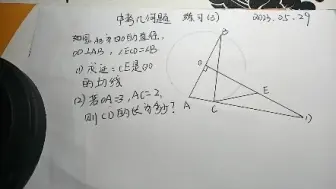 中考几何题 练习(5) 2023.05.29
如图AB为⊙O的直径,
OD⊥AB, ∠ECD=∠B
(1) 求证: CE是⊙O
的切线
(2) 若OA=3, AC=2,
则CD的长为多少?
B
O
E
A
C
D